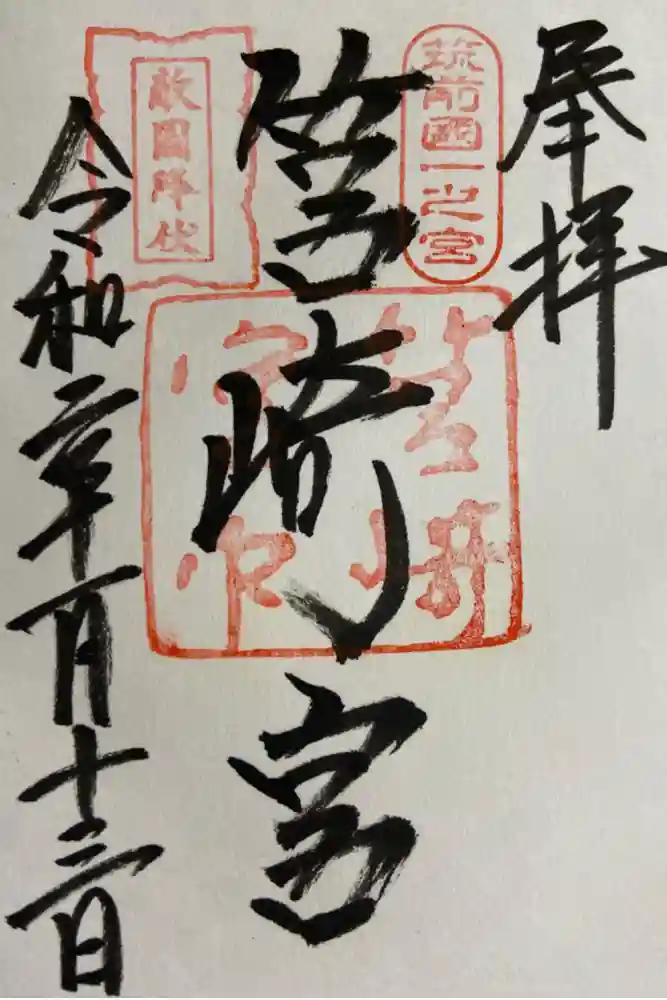 奉拝
筑前國一之宮
筥崎宮
筥崎宮印
敵國降伏
令和二年一月十三日